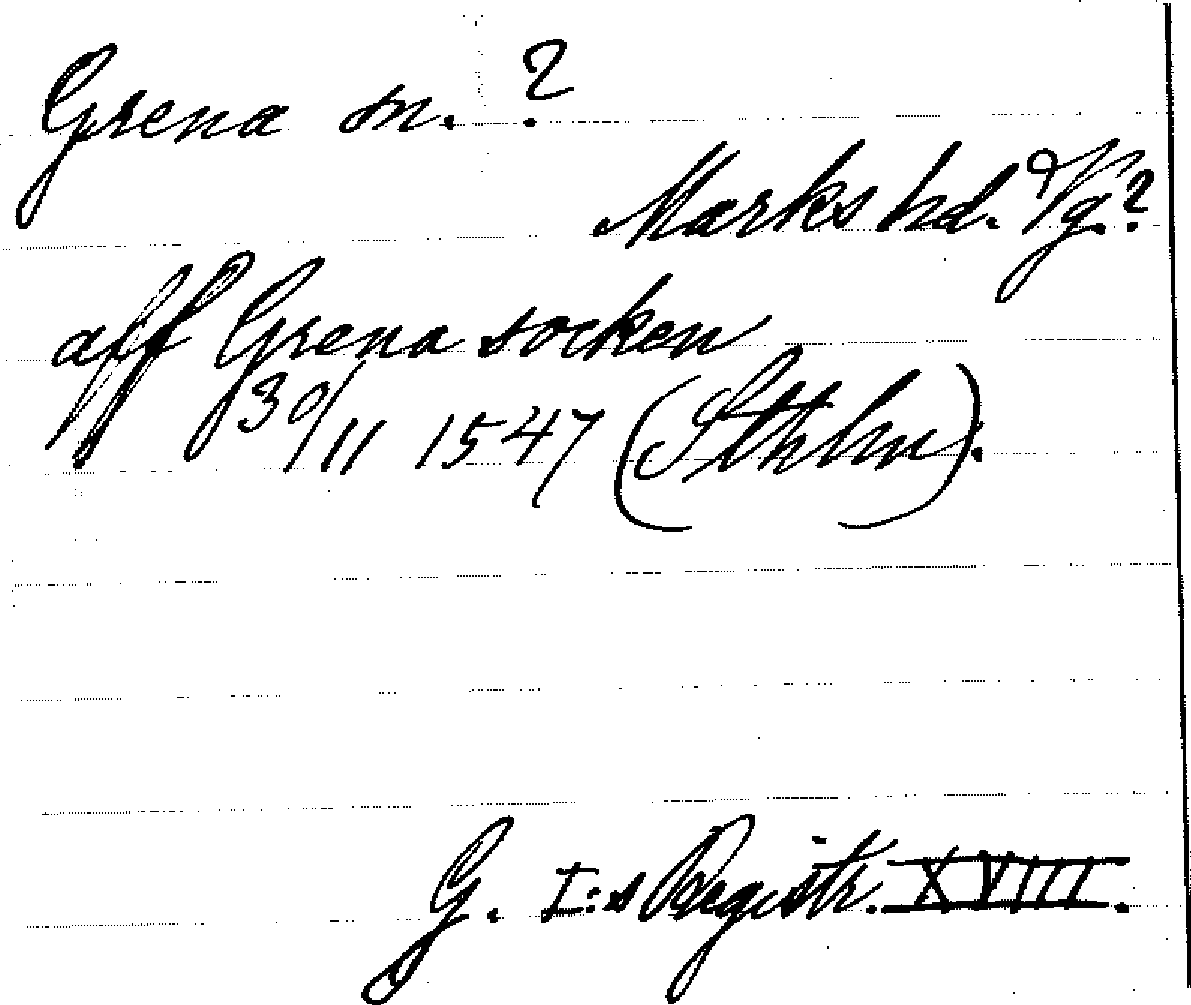 Grena sn. ?
Marks hd. Vg?
aff Grena socken
30/11 1547 (Sthlm).
G. I:s Registr. XVIII.